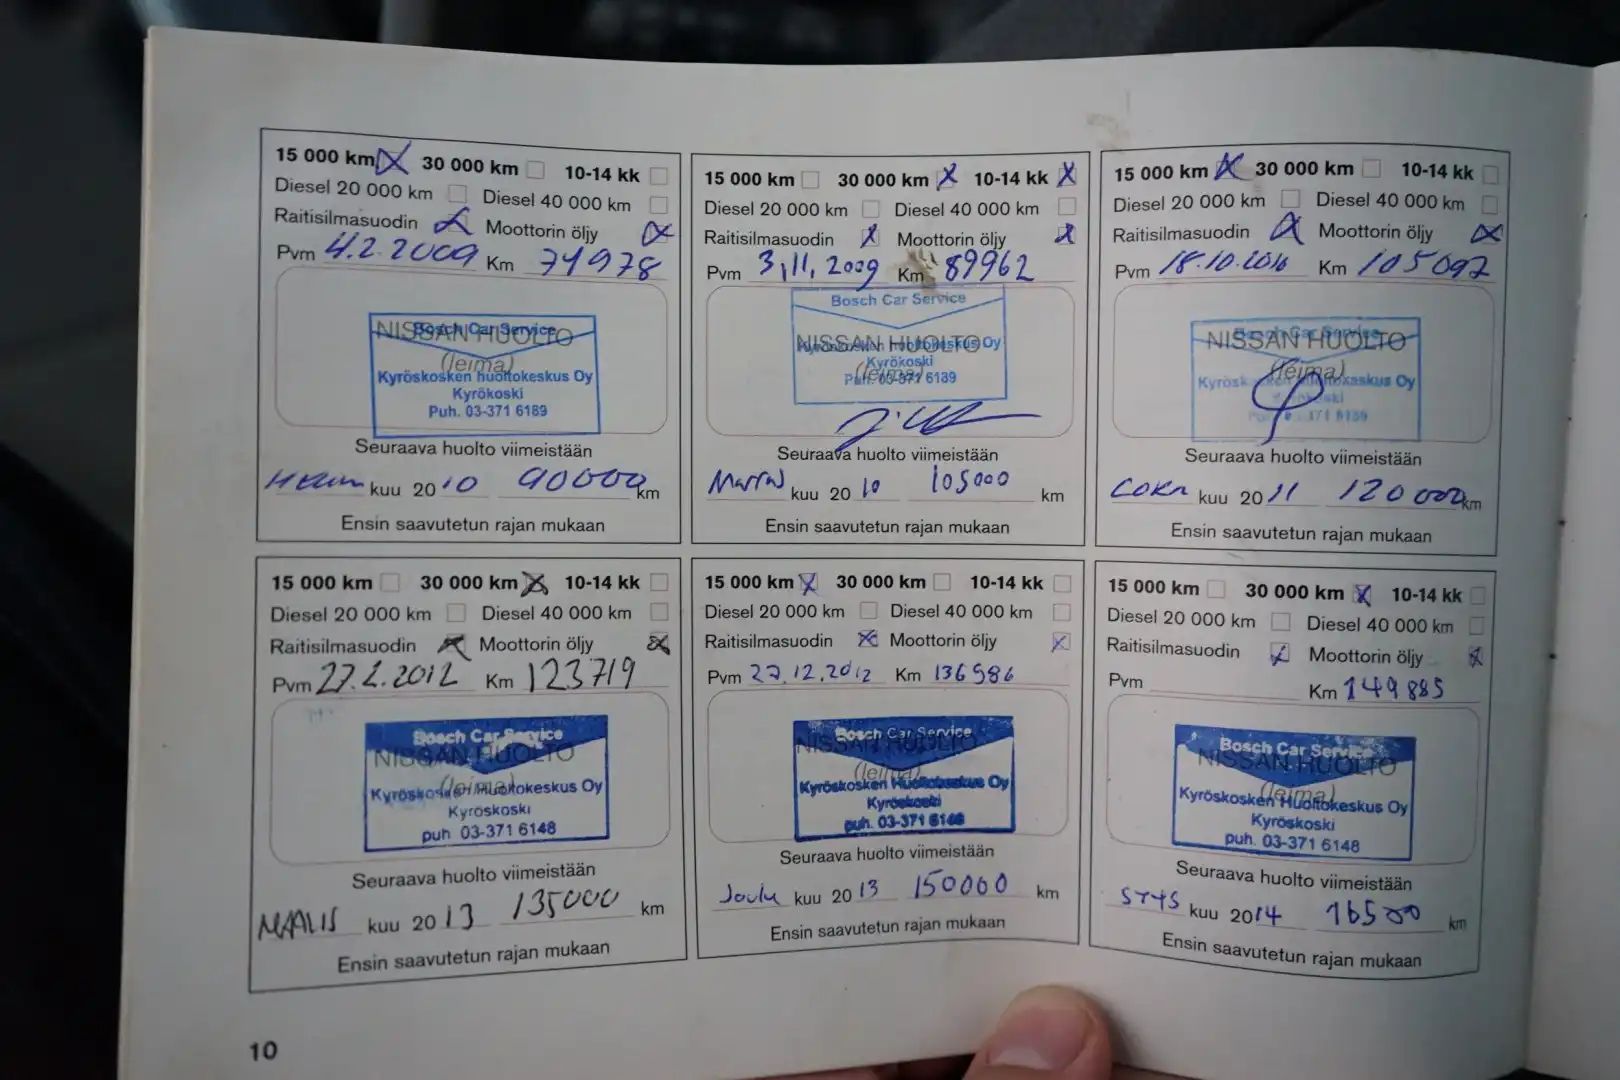 15 000 km 30 000 km 10-14 kk
Diesel 20 000 km Diesel 40 000 km
Raitisilmasuodin Moottorin öljy
Pvm 4.2.2009 Km 74978
NISSAN HUOLTO
(leima)
Bosch Car Service
Kyröskosken huoltokeskus Oy
Kyrökoski
Puh. 03-371 6189
Seuraava huolto viimeistään
kuu 2010 90000 km
Ensin saavutetun rajan mukaan
15 000 km 30 000 km 10-14 kk
Diesel 20 000 km Diesel 40 000 km
Raitisilmasuodin Moottorin öljy
Pvm 3,11,2009 Km 89962
Bosch Car Service
NISSAN HUOLTO
(leima)
Kyröskosken huoltokeskus Oy
Kyrökoski
Puh. 03-371 6189
Seuraava huolto viimeistään
Marras kuu 2010 105000 km
Ensin saavutetun rajan mukaan
15 000 km 30 000 km 10-14 kk
Diesel 20 000 km Diesel 40 000 km
Raitisilmasuodin Moottorin öljy
Pvm 18.10.2010 Km 105097
Bosch Car Service
NISSAN HUOLTO
(leima)
Kyröskosken huoltokeskus Oy
Seuraava huolto viimeistään
Loka kuu 2011 120000 km
Ensin saavutetun rajan mukaan
15 000 km 30 000 km 10-14 kk
Diesel 20 000 km Diesel 40 000 km
Raitisilmasuodin Moottorin öljy
Pvm 27.2.2012 Km 123719
Bosch Car Service
NISSAN HUOLTO
(leima)
Kyröskosken Huoltokeskus Oy
Kyröskoski
puh 03-371 6148
Seuraava huolto viimeistään
MAALIS kuu 2013 135000 km
Ensin saavutetun rajan mukaan
15 000 km 30 000 km 10-14 kk
Diesel 20 000 km Diesel 40 000 km
Raitisilmasuodin Moottorin öljy
Pvm 27.12.2012 Km 136986
Bosch Car Service
NISSAN HUOLTO
(leima)
Kyröskosken Huoltokeskus Oy
Kyröskoski
puh. 03-371 6148
Seuraava huolto viimeistään
Joulu kuu 2013 150000 km
Ensin saavutetun rajan mukaan
15 000 km 30 000 km 10-14 kk
Diesel 20 000 km Diesel 40 000 km
Raitisilmasuodin Moottorin öljy
Pvm Km 149885
Bosch Car Service
NISSAN HUOLTO
(leima)
Kyröskosken Huoltokeskus Oy
Kyröskoski
puh. 03-371 6148
Seuraava huolto viimeistään
SYYS kuu 2014 16500 km
Ensin saavutetun rajan mukaan
10